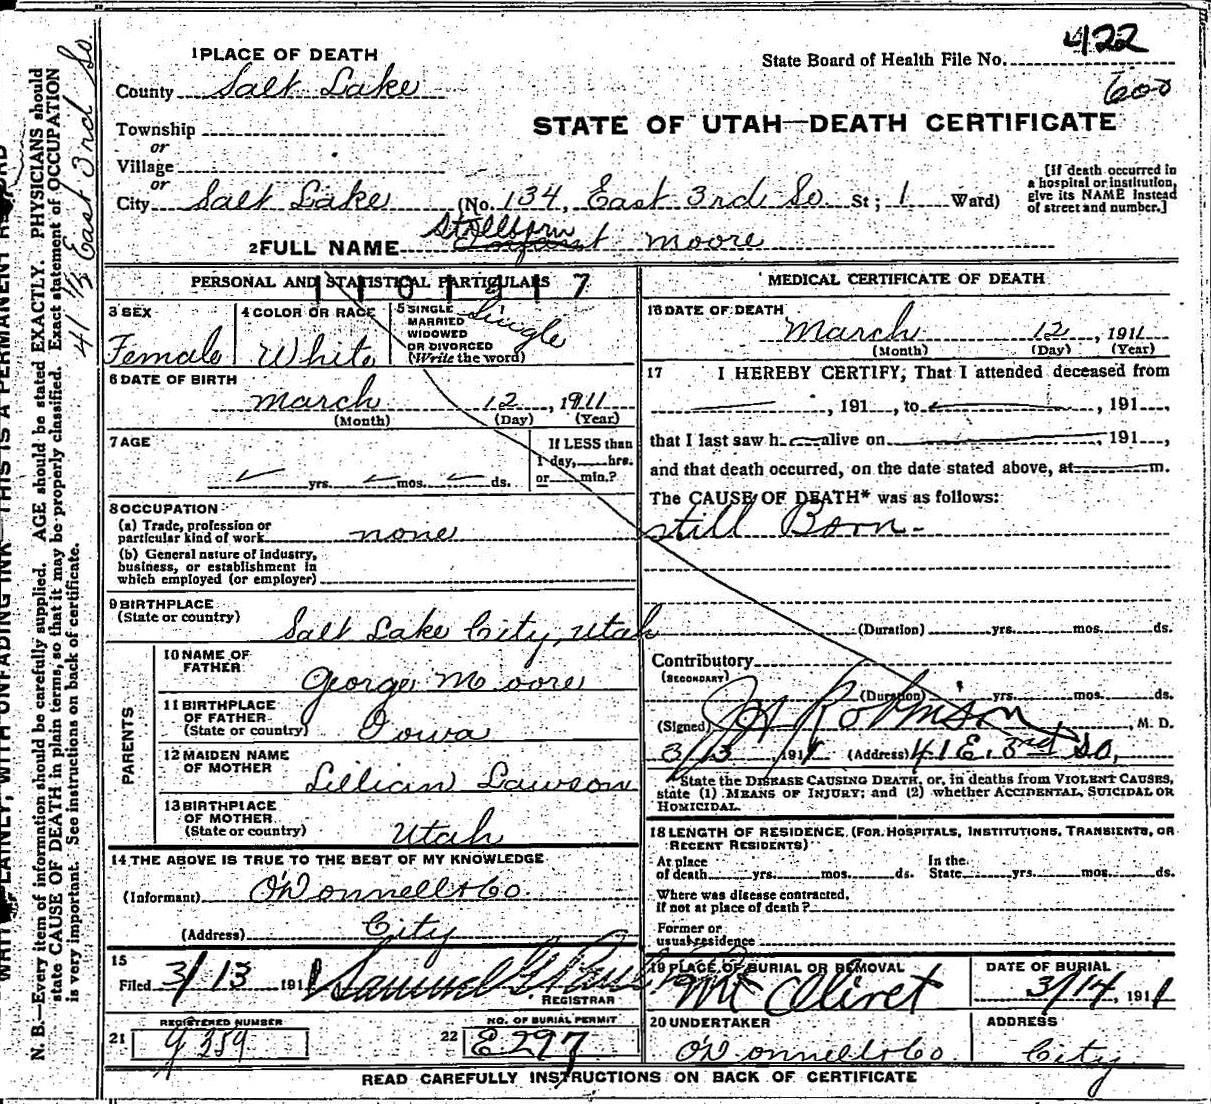 422
State Board of Health File No.
600
1 PLACE OF DEATH
County Salt Lake
STATE OF UTAH—DEATH CERTIFICATE
Township
or
Village
or
City Salt Lake (No. 134, East 3rd So. St; 1 Ward)
[If death occurred in
a hospital or institution,
give its NAME instead
of street and number.]
2 FULL NAME Stillborn Infant Moore
PERSONAL AND STATISTICAL PARTICULARS
3 SEX
Female
4 COLOR OR RACE
White
5 SINGLE
MARRIED
WIDOWED
OR DIVORCED
(Write the word)
Single
6 DATE OF BIRTH
March 12, 1911
(Month) (Day) (Year)
7 AGE
yrs. mos. ds.
If LESS than
1 day, hrs.
or min.?
8 OCCUPATION
(a) Trade, profession or
particular kind of work none
(b) General nature of industry,
business, or establishment in
which employed (or employer)
9 BIRTHPLACE
(State or country)
Salt Lake City, Utah
PARENTS
10 NAME OF
FATHER
George Moore
11 BIRTHPLACE
OF FATHER
(State or country) Iowa
12 MAIDEN NAME
OF MOTHER
Lillian Lawson
13 BIRTHPLACE
OF MOTHER
(State or country) Utah
14 THE ABOVE IS TRUE TO THE BEST OF MY KNOWLEDGE
(Informant) O'Donnell & Co.
(Address) City
15
Filed 3/13 1911 Samuel G.
REGISTRAR
21 REGISTERED NUMBER
259
22 NO. OF BURIAL PERMIT
E297
MEDICAL CERTIFICATE OF DEATH
16 DATE OF DEATH
March 12, 1911
(Month) (Day) (Year)
17 I HEREBY CERTIFY, That I attended deceased from
, 191 , to , 191 ,
that I last saw h alive on , 191 ,
and that death occurred, on the date stated above, at m.
The CAUSE OF DEATH* was as follows:
Still Born-
(Duration) yrs. mos. ds.
Contributory
(SECONDARY)
(Duration) yrs. mos. ds.
(Signed) Robinson, M. D.
3/13 1911 (Address) 41 E. 3rd So,
*State the DISEASE CAUSING DEATH, or, in deaths from VIOLENT CAUSES,
state (1) MEANS OF INJURY; and (2) whether ACCIDENTAL, SUICIDAL OR
HOMICIDAL.
18 LENGTH OF RESIDENCE (FOR HOSPITALS, INSTITUTIONS, TRANSIENTS, OR
RECENT RESIDENTS)
At place
of death yrs. mos. ds.
In the
State yrs. mos. ds.
Where was disease contracted,
if not at place of death?
Former or
usual residence
19 PLACE OF BURIAL OR REMOVAL
Mt Olivet
DATE OF BURIAL
3/14, 1911
20 UNDERTAKER
O'Donnell & Co.
ADDRESS
City
READ CAREFULLY INSTRUCTIONS ON BACK OF CERTIFICATE
PLAINLY, WITH UNFADING INK—THIS IS A PERMANENT RECORD
N. B.—Every item of information should be carefully supplied. AGE should be stated EXACTLY. PHYSICIANS should
state CAUSE OF DEATH in plain terms, so that it may be properly classified. Exact statement of OCCUPATION
is very important. See instructions on back of certificate.
41 1/2 East 3rd So